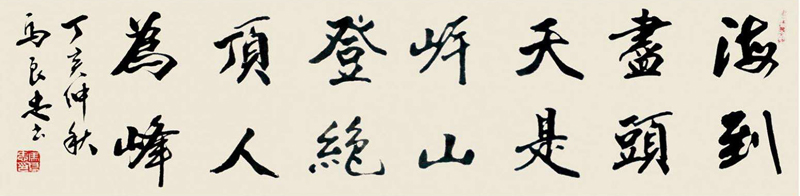 海到
盡頭
天是
岸山
登絶
頂人
為峰
丁亥仲秋
馬良书